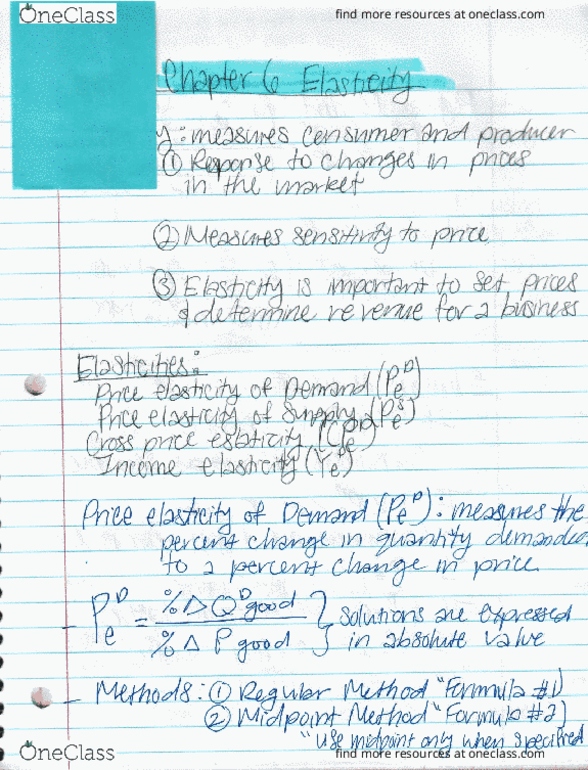 OneClass
find more resources at oneclass.com
Chapter 6 Elasticity
y: measures consumer and producer
① Response to changes in prices
in the market
② Measures sensitivity to price
③ Elasticity is important to set prices
& determine revenue for a business
Elasticities:
Price elasticity of Demand (PeD)
Price elasticity of Supply (PeS)
Cross price elasticity
Income elasticity (Ye)
Price elasticity of Demand (PeD): measures the
percent change in quantity demanded
to a percent change in price.
- PeD = %Δ QD good / %Δ P good } Solutions are expressed
in absolute value
- Methods: ① Regular Method "Formula #1)
② Midpoint Method "Formula #2)
"use midpoint only when specified
OneClass
find more resources at oneclass.com